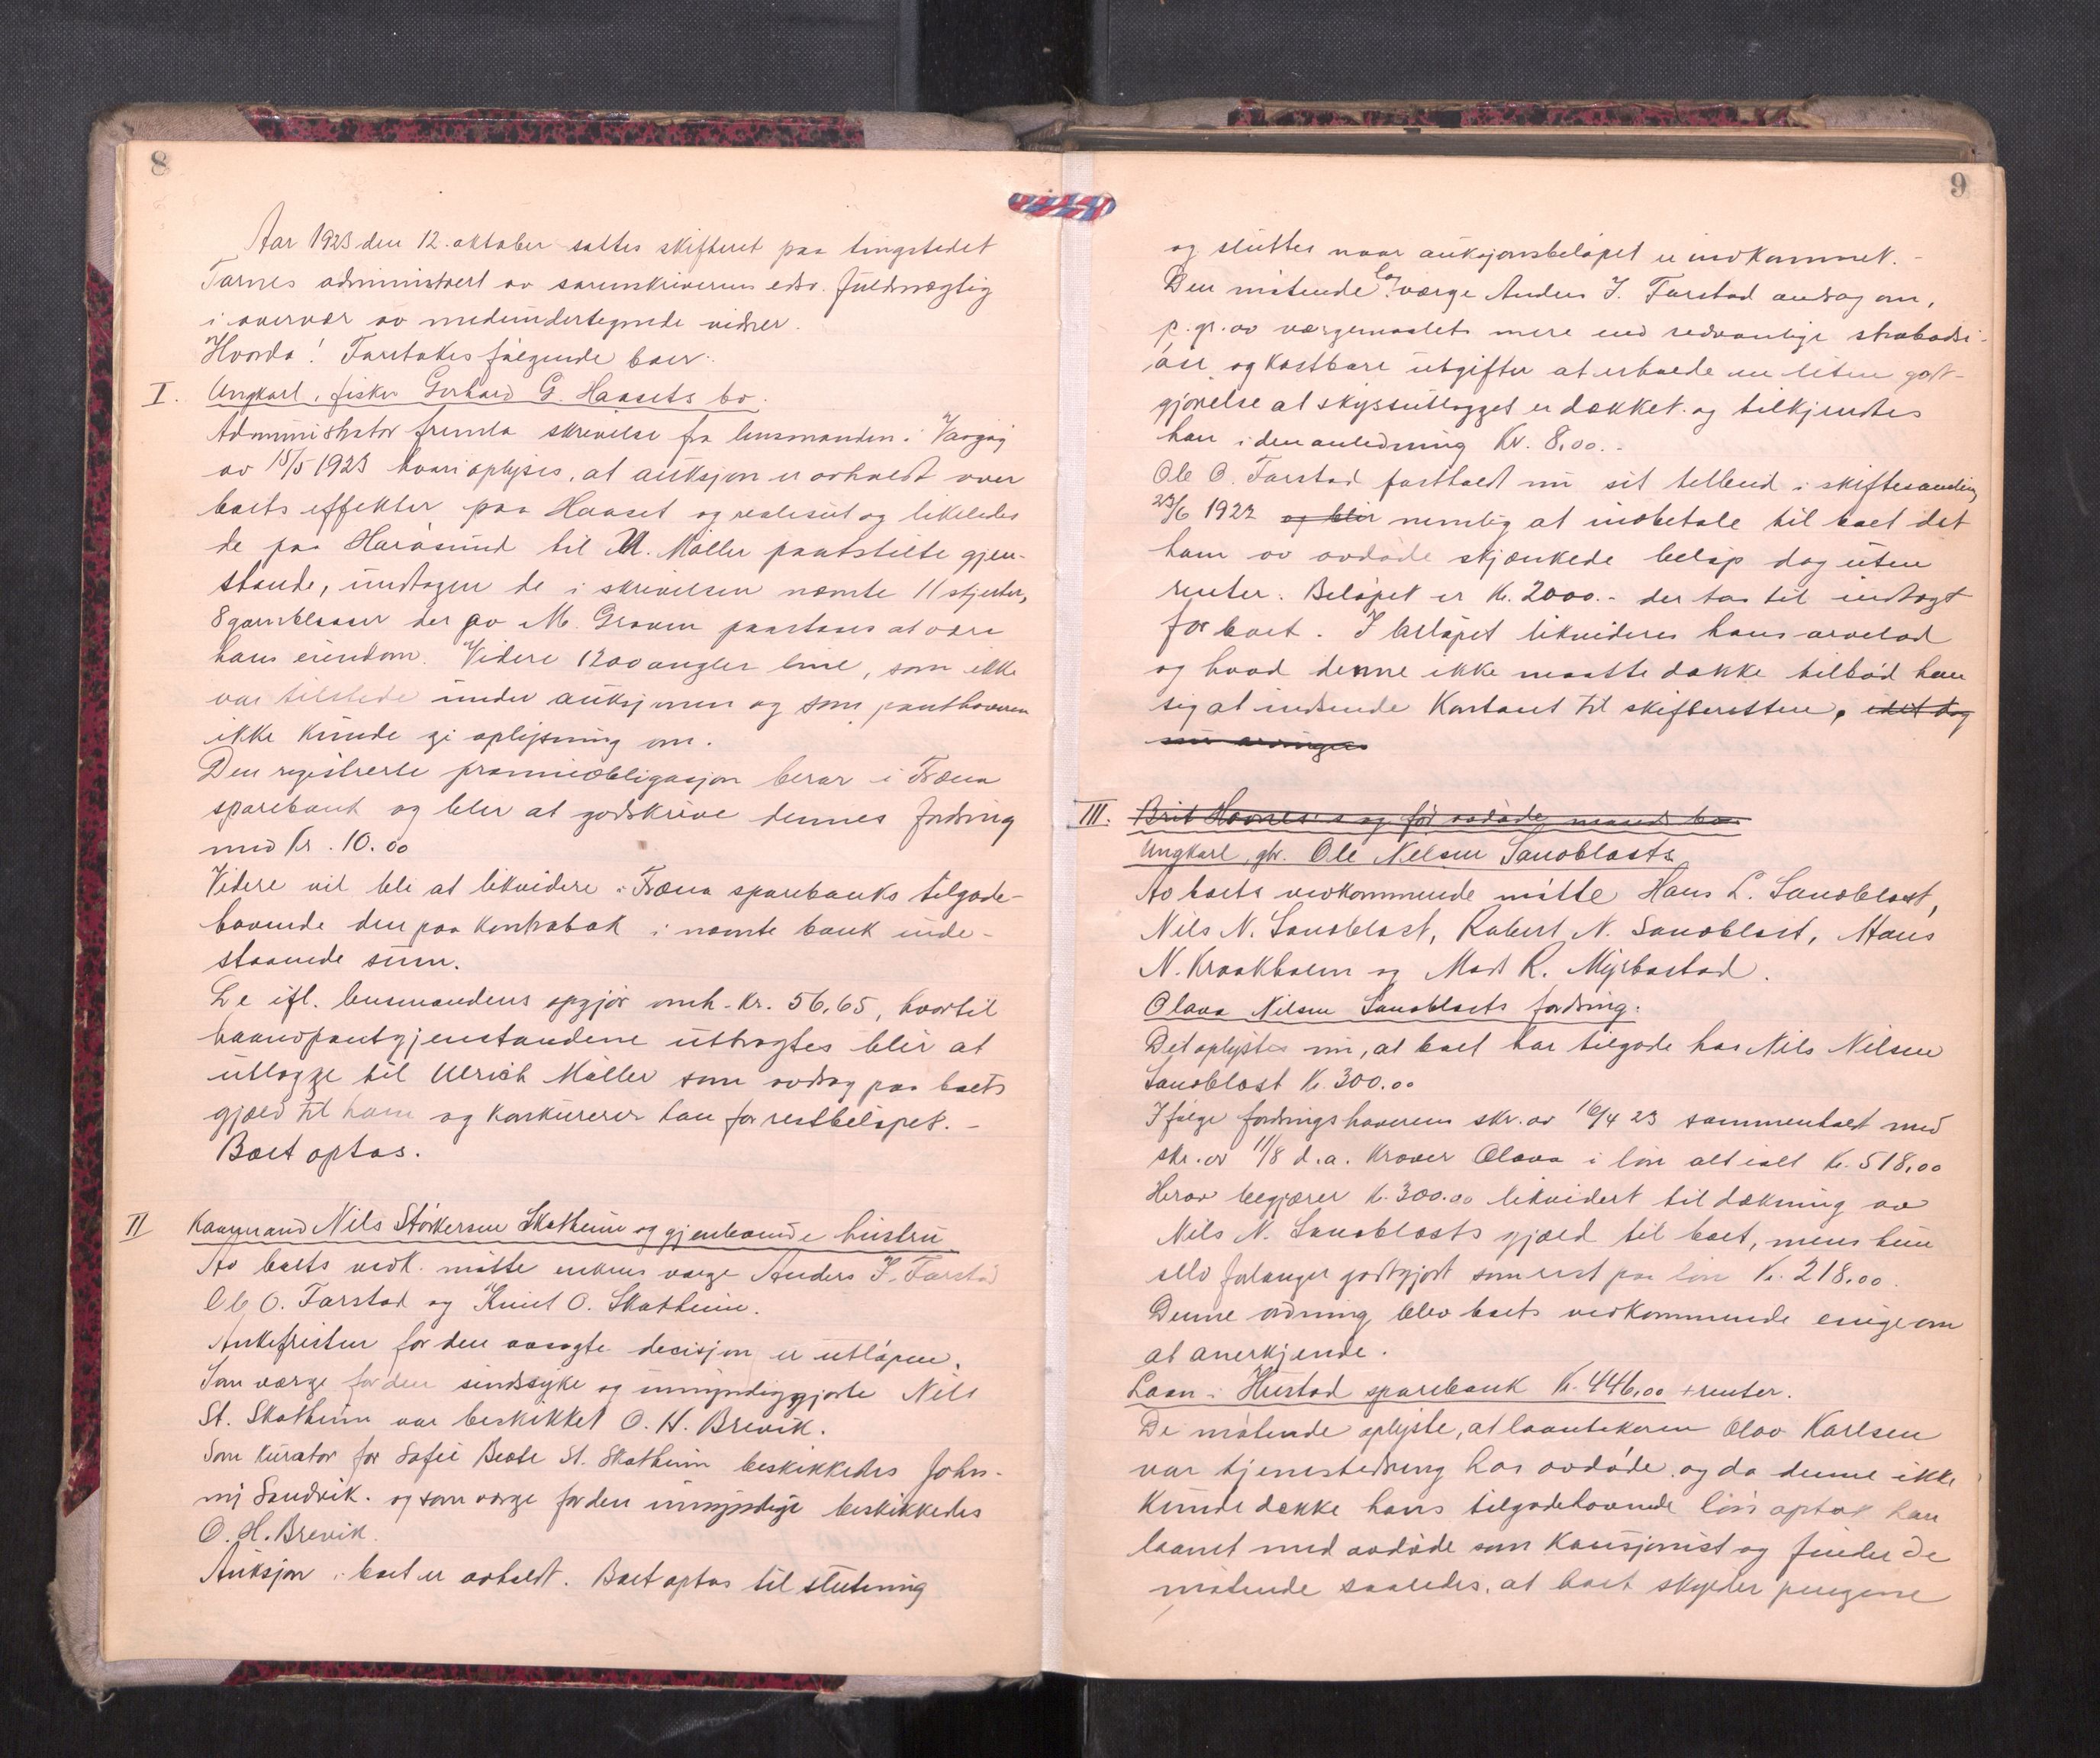 8
Aar 1923 den 12. oktober sattes skifteret paa tingstedet
Tornes administrert av sorenskriverens edsv. fuldmægtig
i overvær av medundertegnede vidner.
Hvorda! Foretokes følgende boer:
I. Ungkarl, fisker Gerhard G. Haasets bo.
Administrator fremla skrivelse fra lensmanden i Vaagøy
av 15/5 1923 hvori oplyses, at auksjon er avholdt over
boets effekter paa Haaset og realisert og likeledes
de paa Harøsund til M. Møller pantstilte gjen-
stande, undtagen de i skrivelsen nævnte 11 stjerter,
8 garnblaaser der av M. Groven paastaaes at være
hans eiendom. Videre 1200 angler line, som ikke
var tilstede under auksjonen og som panthaveren
ikke kunde gi oplysning om.
Den registrerte præmieobligasjon beror i Fræna
sparebank og blir at godskrive dennes fordring
med Kr. 10.00
Videre vil bli at likvidere i Fræna sparebanks tilgode-
havende den paa Kontrabok i nævnte bank inde-
staaende sum.
De ifl. lensmandens opgjør omh. Kr. 56,65, hvortil
haandpantgjenstandene utbragtes blir at
utlægge til Ulrich Møller som avdrag paa boets
gjæld til ham og konkurerer han for restbeløpet. -
Boet optas.
II Kaarmand Nils Størkersen Skotheim og gjenlevende hustru
Av boets vedk. møtte enkens værge Anders J. Farstad
Ole O. Farstad og Knut O. Skotheim.
Ankefristen for den avsagte decisjon er utløpen.
Som værge for den sindssyke og umyndiggjorte Nils
St. Skotheim var beskikket O. H. Brevik.
Som kurator for Sofie Beate St. Skotheim beskikkedes John-
ny Sandvik. og som værge for den umyndige beskikkedes
O. H. Brevik.
Auksjon i boet er avholdt. Boet optas til slutning
9
og sluttes naar auksjonsbeløpet er indkommet. -
Den møtende lagværge Anders J. Farstad androg om,
p. gr. av værgemaalets mere end sedvanlige strabadsi-
øse og kostbare utgifter at erholde en liten godt-
gjørelse at skyssutlægget er dækket og tilkjendtes
han i den anledning Kr. 8,00. -
Ole O. Farstad fastholdt nu sit tilbud i skiftesamling
23/6 1922 og blir nemlig at indbetale til boet det
ham av avdøde skjænkede beløp dog uten
renter. Beløpet er Kr. 2000.- der tas til indtægt
for boet. I beløpet likvideres hans arvelod
og hvad denne ikke maatte dække tilbød han
sig at indsende Kontant til skifteretten, idet dog
III. Brit Hovnes's og før avdøde mands bo
Ungkarl, gbr. Ole Nelsen Sandblaasts
Av boets vedkommende møtte Hans L. Sandblaast,
Nils N. Sandblaast, Robert N. Sandblaast, Hans
N. Kraakholm og Mads R. Myrbostad.
Olava Nilsen Sandblaasts fordring.
Det oplystes nu, at boet har tilgode hos Nils Nilsen
Sandblaast Kr. 300.00
Ifølge fordringshaverens skr. av 16/4 23 sammenholdt med
skr. av 11/8 d.a. kræver Olava i løn alt ialt Kr. 518,00
Herav begjærer Kr. 300.00 likvidert til dækning av
Nils N. Sandblaasts gjæld til boet, mens hun
selv forlanger godtgjort som rest paa løn Kr. 218,00.
Denne ordning blev boets vedkommende enige om
at anerkjende.
Laan i Hustad sparebank Kr. 446,00 + renter.
De møtende oplyste, at laantakeren Olav Karlsen
var tjenestedreng hos avdøde og da denne ikke
kunde dække hans tilgodehavende løn optok han
laanet med avdøde som Kausjonist og finder de
møtende saaledes, at boet skylder pengene